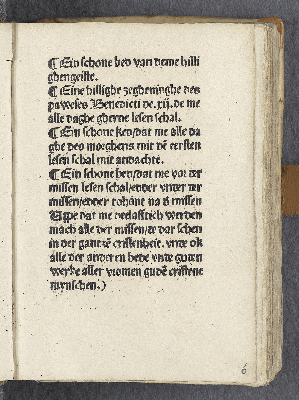 ¶ Ein schone bed van deme hilli
ghengeiste.
¶ Eine hillighe zegheninghe des
paweses Benedicti de. xij. de me
alle daghe gherne lesen schal.
¶ Ein schone bed/dat me alle da
ghe des morghens mit dē ersten
lesen schal mit andacht.
¶ Ein schone bed/dat me vor der
missen lesen schal/edder vnder der
missen/edder tohāt na d missen
Uppe dat me delaftich werden
mach alle der missen/de dar schen
in der gantzē cristenheit. vnde ok
alle der anderen bede vnde guden
werke aller vromen gudē cristene
mynschen.)
6